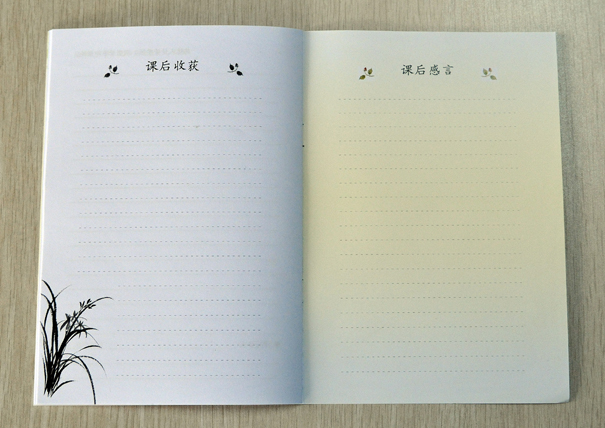 课后收获
课后感言